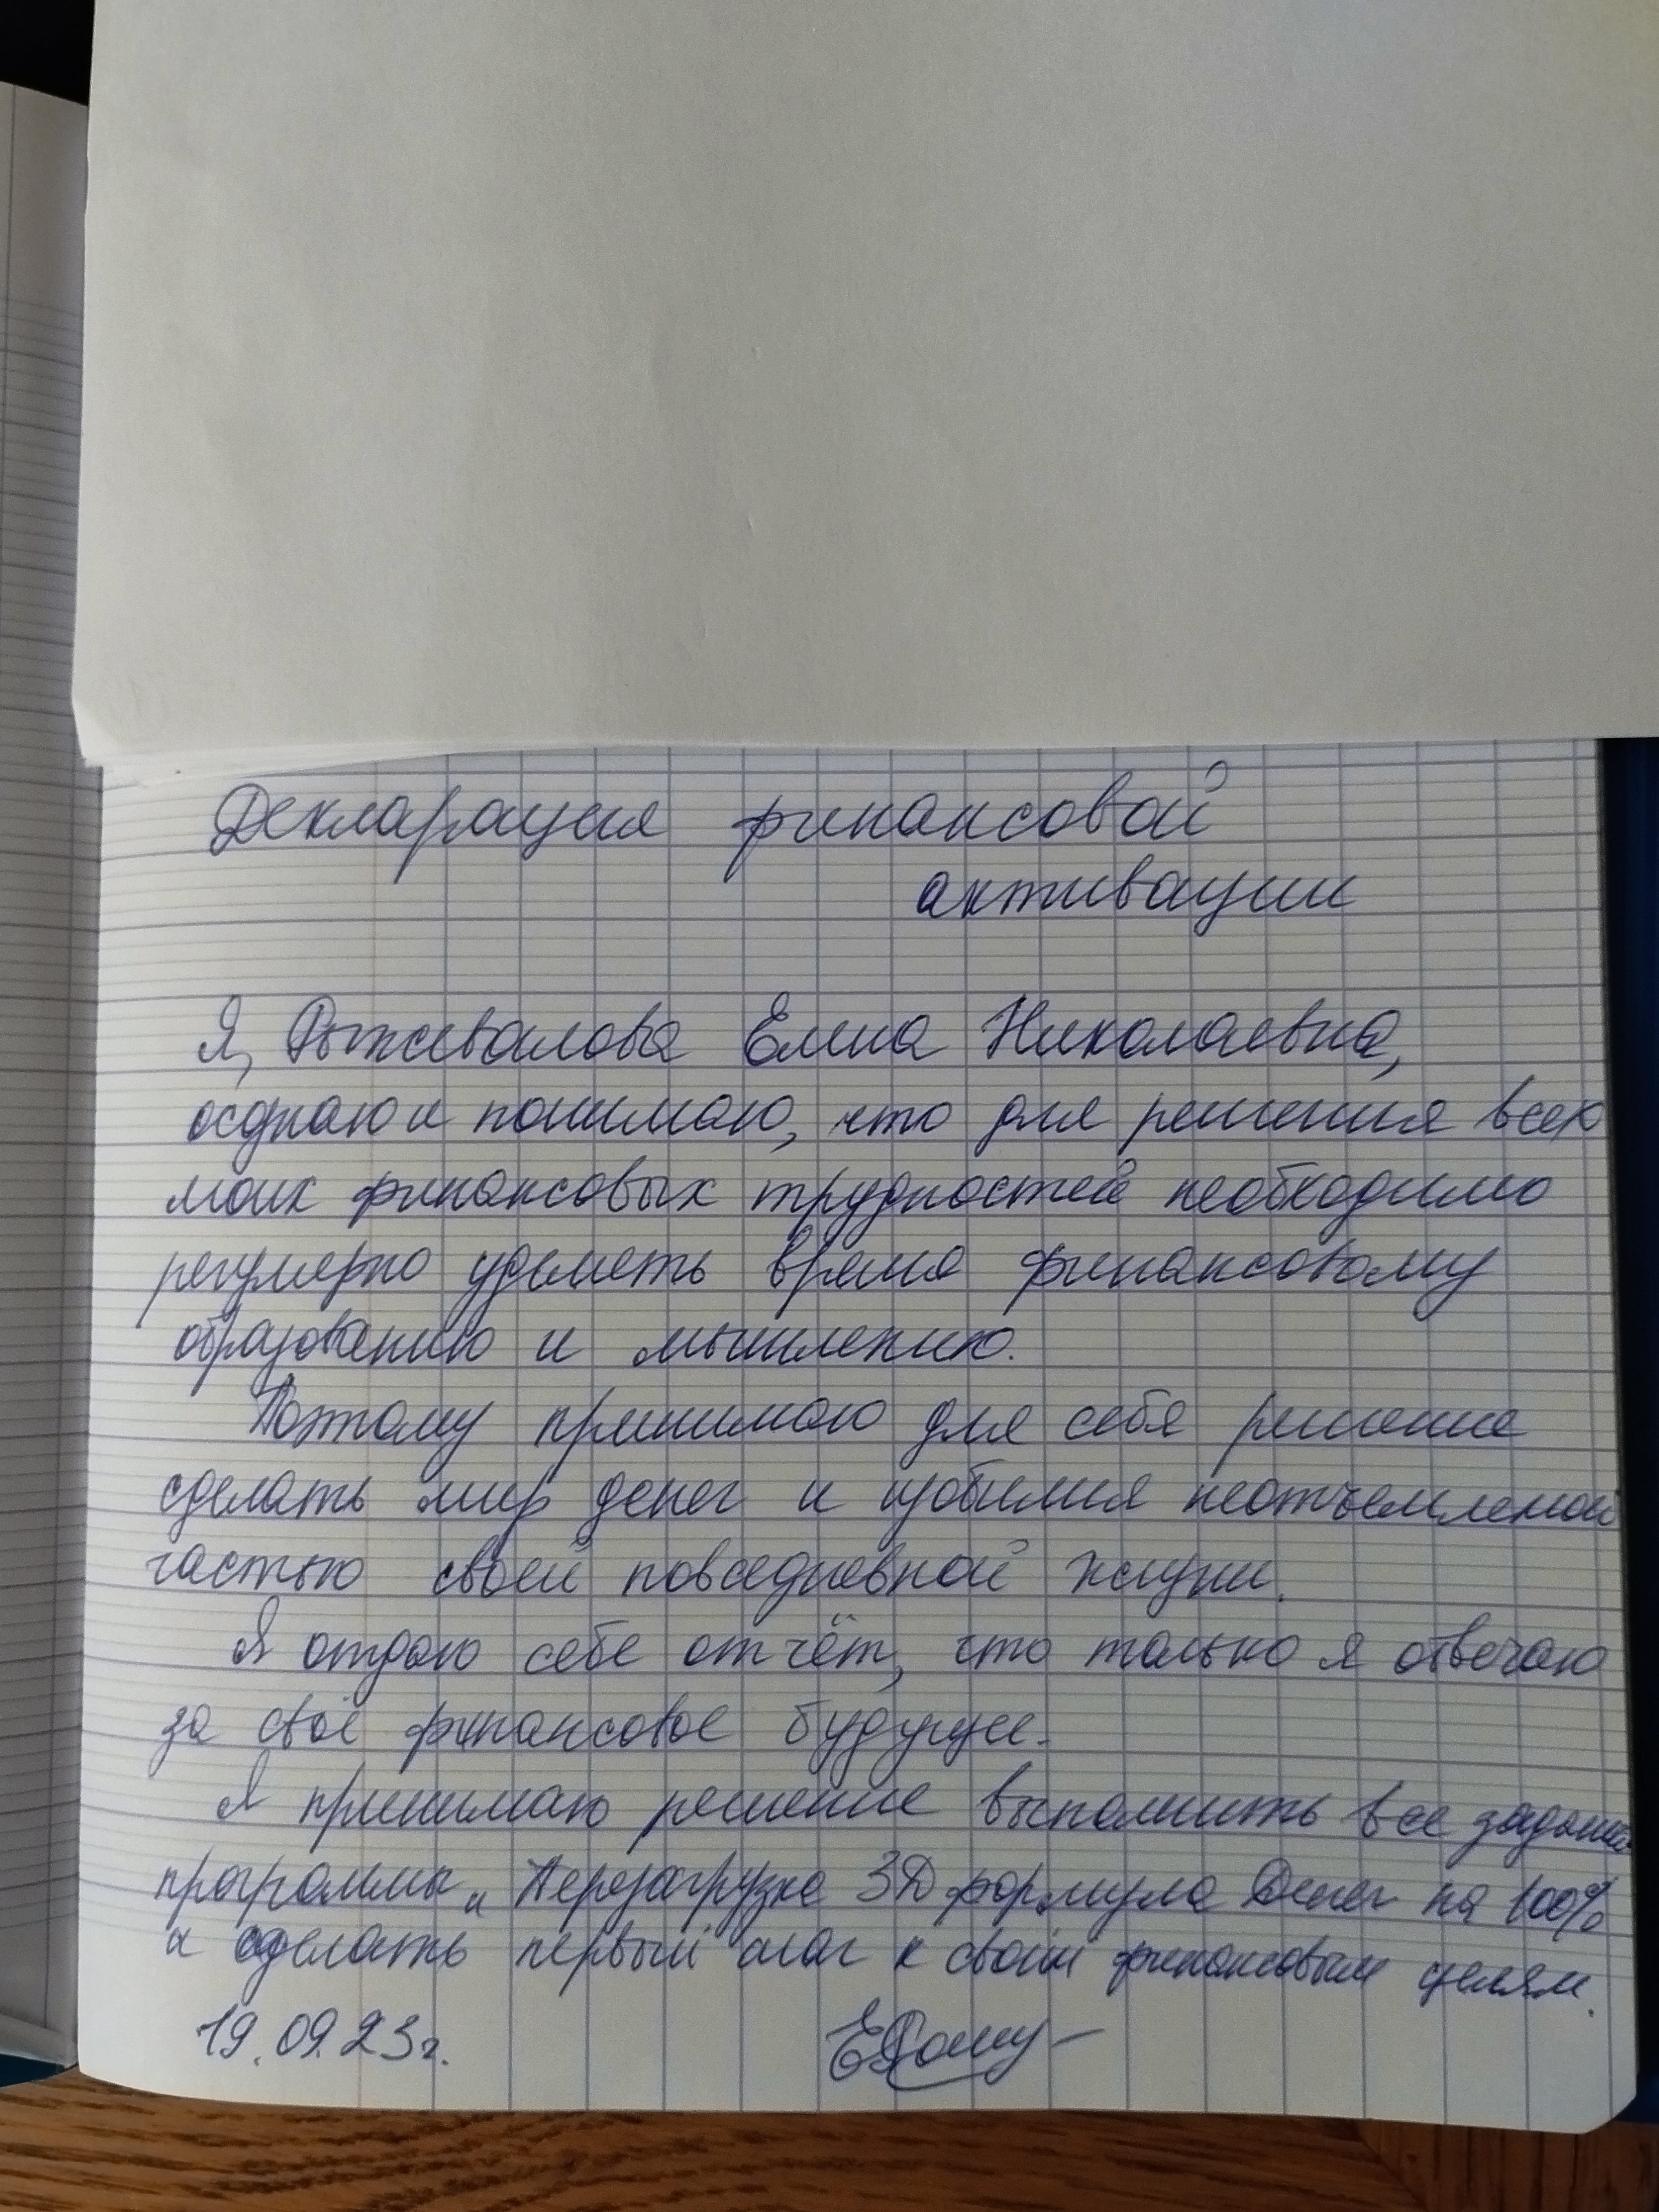 Декларация финансовой
активации
Я, Рыжевалова Елена Николаевна,
осднаю и понимаю, что для решения всех
моих финансовых трудностей необходимо
регулярно уделять время финансовому
образованию и мышлению.
Поэтому принимаю для себя решение
сделать мир денег и изобилия неотъемлемой
частью своей повседневной жизни.
Я отдаю себе отчёт, что только я отвечаю
за своё финансовое будущее.
Я принимаю решение выполнить все задания
программы „Перезагрузка 3D формула Денег на 100%
и сделать первый шаг к своим финансовым целям.
19.09.23г.